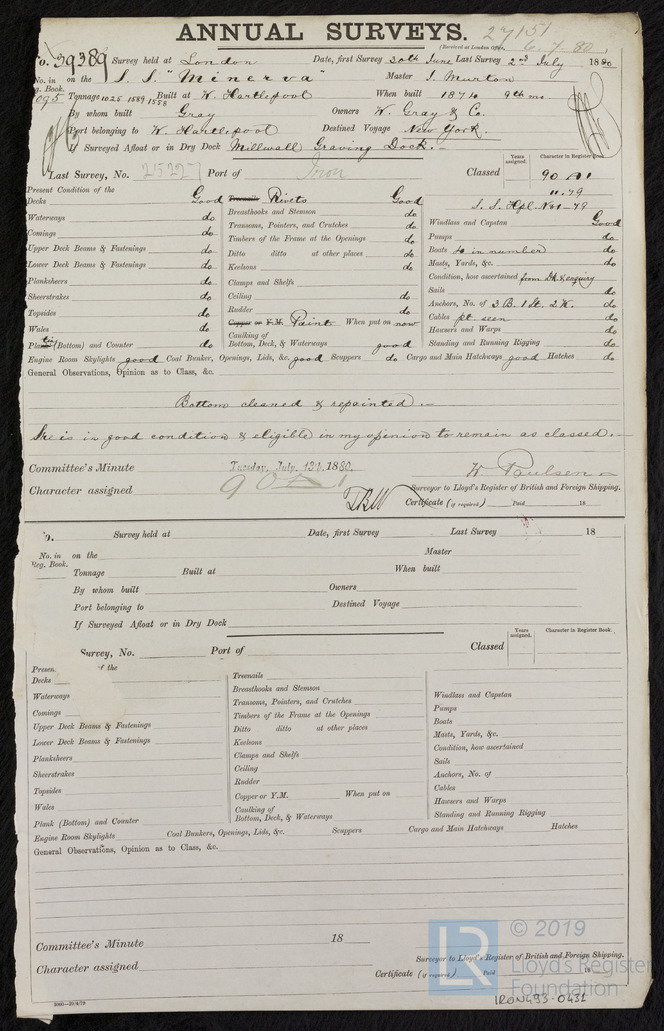 ANNUAL SURVEYS.
27151
(Received at London Office, 6.7.80)
No. 39389 Survey held at London Date, first Survey 30th June Last Survey 2nd July 1880
No. in on the S.S. "Minerva" Master J. Murton
Reg. Book.
095 Tonnage 1025 1589 1558 Built at W. Hartlepool When built 1874 9th mo.
By whom built Gray Owners W. Gray & Co.
Port belonging to W. Hartlepool Destined Voyage New York.
If Surveyed Afloat or in Dry Dock Millwall Graving Dock.
Years assigned. Character in Register Book.
Last Survey, No. 21522 Port of Iron Classed 90 A1
11.79
S.S. Hpl. No1-79
Present Condition of the
Decks Good
Waterways do
Comings do
Upper Deck Beams & Fastenings do
Lower Deck Beams & Fastenings do
Planksheers do
Sheerstrakes do
Topsides do
Wales do
Plating (Bottom) and Counter do
Treenails Rivets Good
Breasthooks and Stemson do
Transoms, Pointers, and Crutches do
Timbers of the Frame at the Openings do
Ditto ditto at other places do
Keelsons do
Clamps and Shelfs
Ceiling do
Rudder do
Copper or Y.M. Paint When put on now
Caulking of
Bottom, Deck, & Waterways good
Windlass and Capstan Good
Pumps do
Boats 4 in number do
Masts, Yards, &c. do
Condition, how ascertained from Dk & enquiry
Sails do
Anchors, No. of 3 B. 1 St. 2 K. do
Cables pt seen do
Hawsers and Warps do
Standing and Running Rigging do
Engine Room Skylights good Coal Bunker, Openings, Lids, &c. good Scuppers do Cargo and Main Hatchways good Hatches do
General Observations, Opinion as to Class, &c.
Bottom cleaned & repainted.
She is in good condition & eligible in my opinion to remain as classed.
Committee's Minute Tuesday, July, 13th, 1880.
W Paulsen
Character assigned 90 A1
Surveyor to Lloyd's Register of British and Foreign Shipping.
Certificate (if required) Paid 18
No. Survey held at Date, first Survey Last Survey 18
No. in on the Master
Reg. Book.
Tonnage Built at When built
By whom built Owners
Port belonging to Destined Voyage
If Surveyed Afloat or in Dry Dock
Years assigned. Character in Register Book.
Survey, No. Port of Classed
Presen. of the
Decks
Waterways
Comings
Upper Deck Beams & Fastenings
Lower Deck Beams & Fastenings
Planksheers
Sheerstrakes
Topsides
Wales
Plank (Bottom) and Counter
Treenails
Breasthooks and Stemson
Transoms, Pointers, and Crutches
Timbers of the Frame at the Openings
Ditto ditto at other places
Keelsons
Clamps and Shelfs
Ceiling
Rudder
Copper or Y.M. When put on
Caulking of
Bottom, Deck, & Waterways
Windlass and Capstan
Pumps
Boats
Masts, Yards, &c.
Condition, how ascertained
Sails
Anchors, No. of
Cables
Hawsers and Warps
Standing and Running Rigging
Engine Room Skylights Coal Bunkers, Openings, Lids, &c. Scuppers Cargo and Main Hatchways Hatches
General Observations, Opinion as to Class, &c.
Committee's Minute 18
Character assigned
Surveyor to Lloyd's Register of British and Foreign Shipping.
Certificate (if required) Paid 18
LR © 2019
Lloyd's Register
Foundation
IRON493-0431